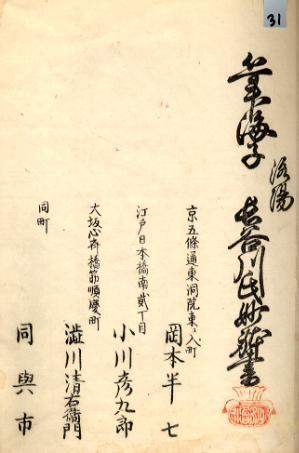 31
筆海子 洛陽 長谷川氏妙躰書
京五條通東洞院東ヘ入町
岡本半七
江戸日本橋南貳丁目
小川彦九郎
大坂心斎橋筋順慶町
澁川清右衛門
同町
同與市